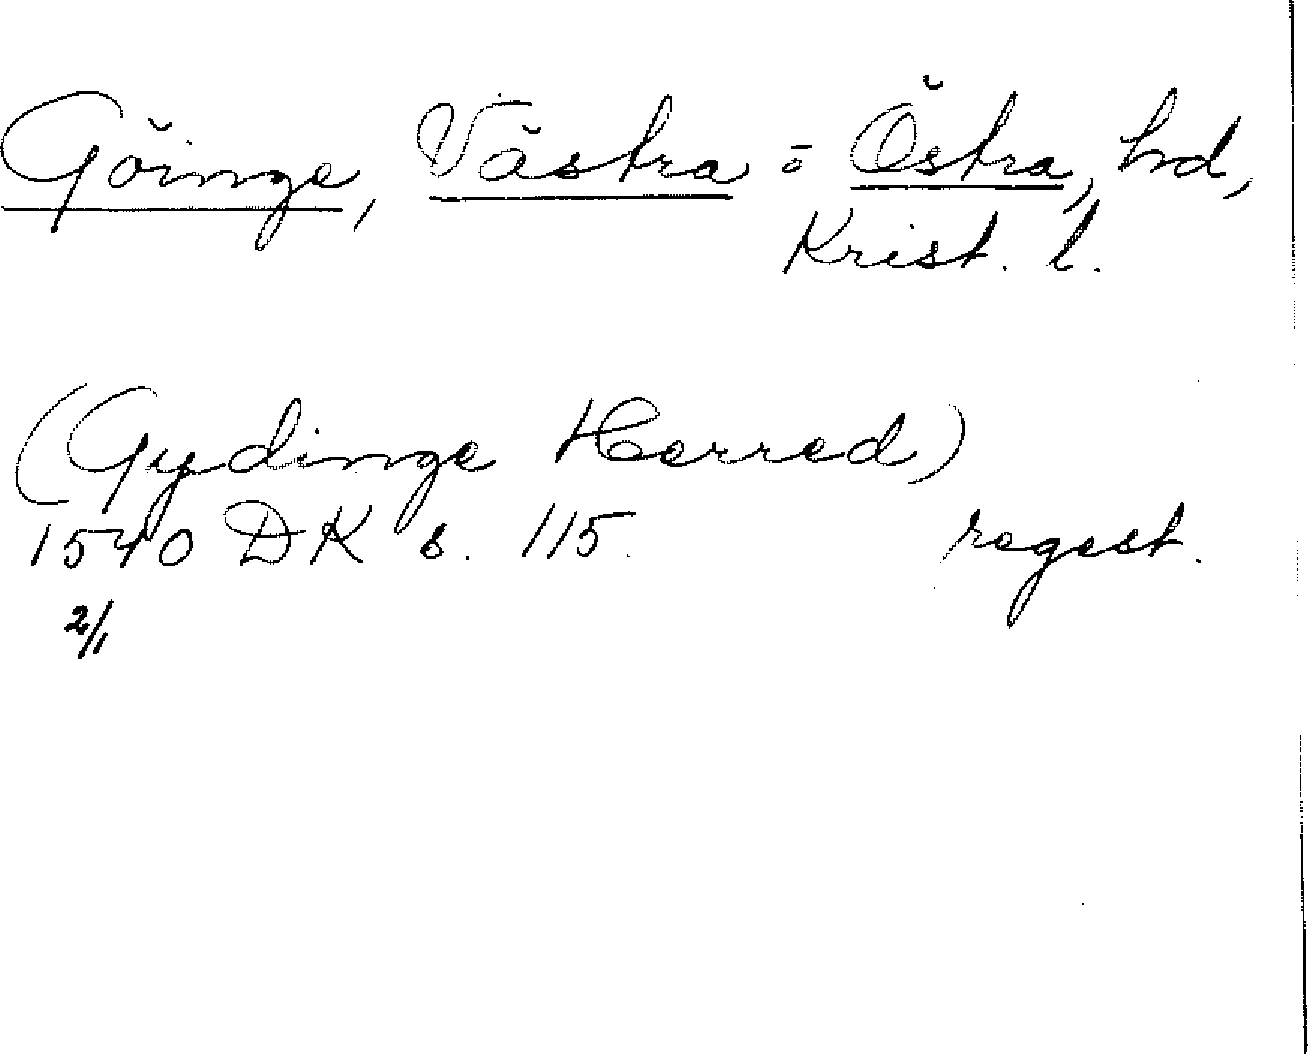 Göinge, Västra o Östra, hd,
Krist. l.
(Gydinge Herred)
1540 DK s. 115. regest.
2/1